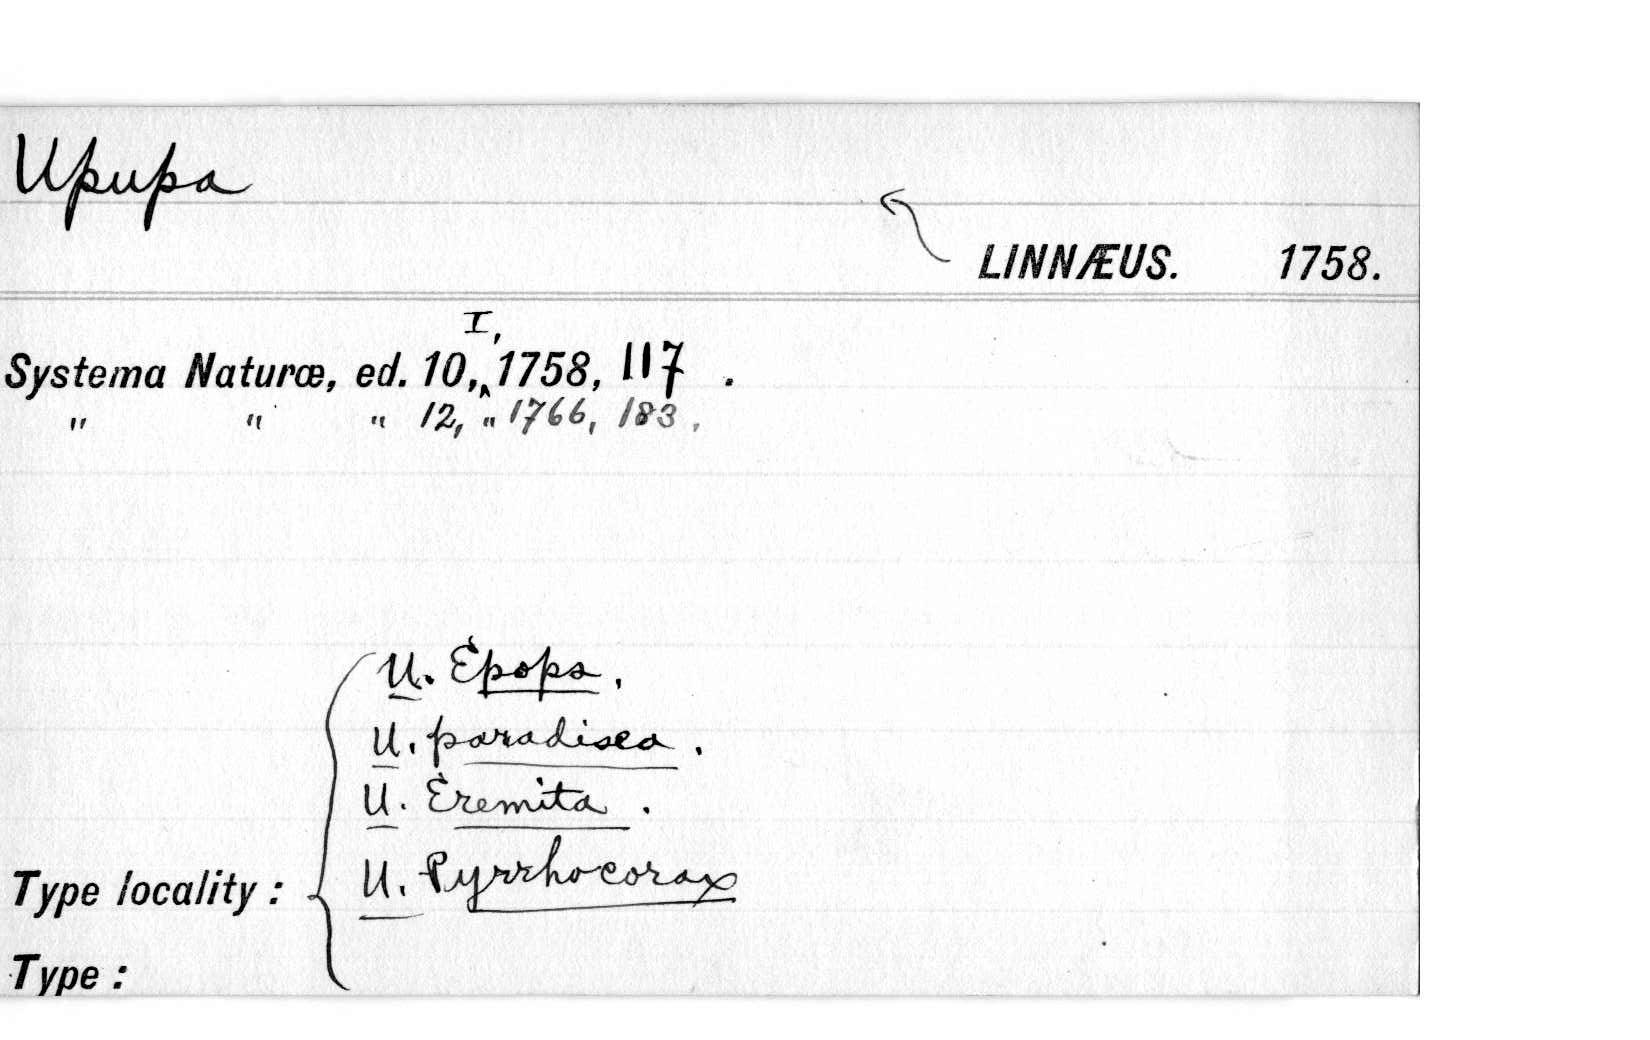 Upupa
LINNÆUS. 1758.
I,
Systema Naturæ, ed. 10,‸ 1758, 117 .
" " " 12, " 1766, 183.
U. Epops.
U. paradisea.
U. Eremita.
Type locality : U. Pyrrhocorax
Type :